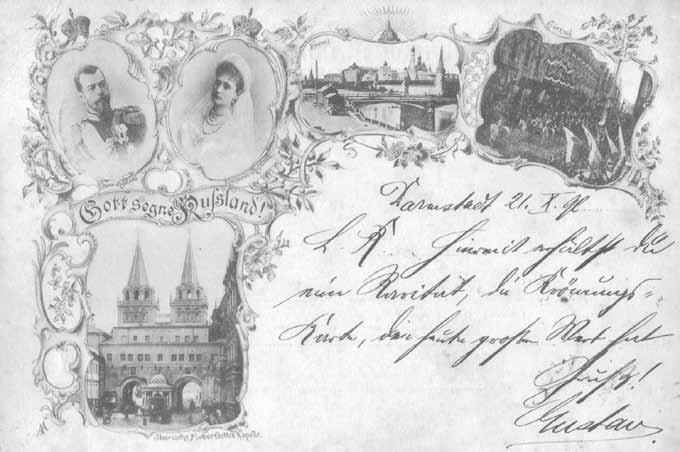 Gott segne Russland!
Iberische Mutter Gottes Kapelle.
Darmstadt 21. X. 96.
L. K. Hiermit erhältst du
eine Rarität, die Krönungs-
Karte, die heute großen Wert hat
Gruß!
Gustav